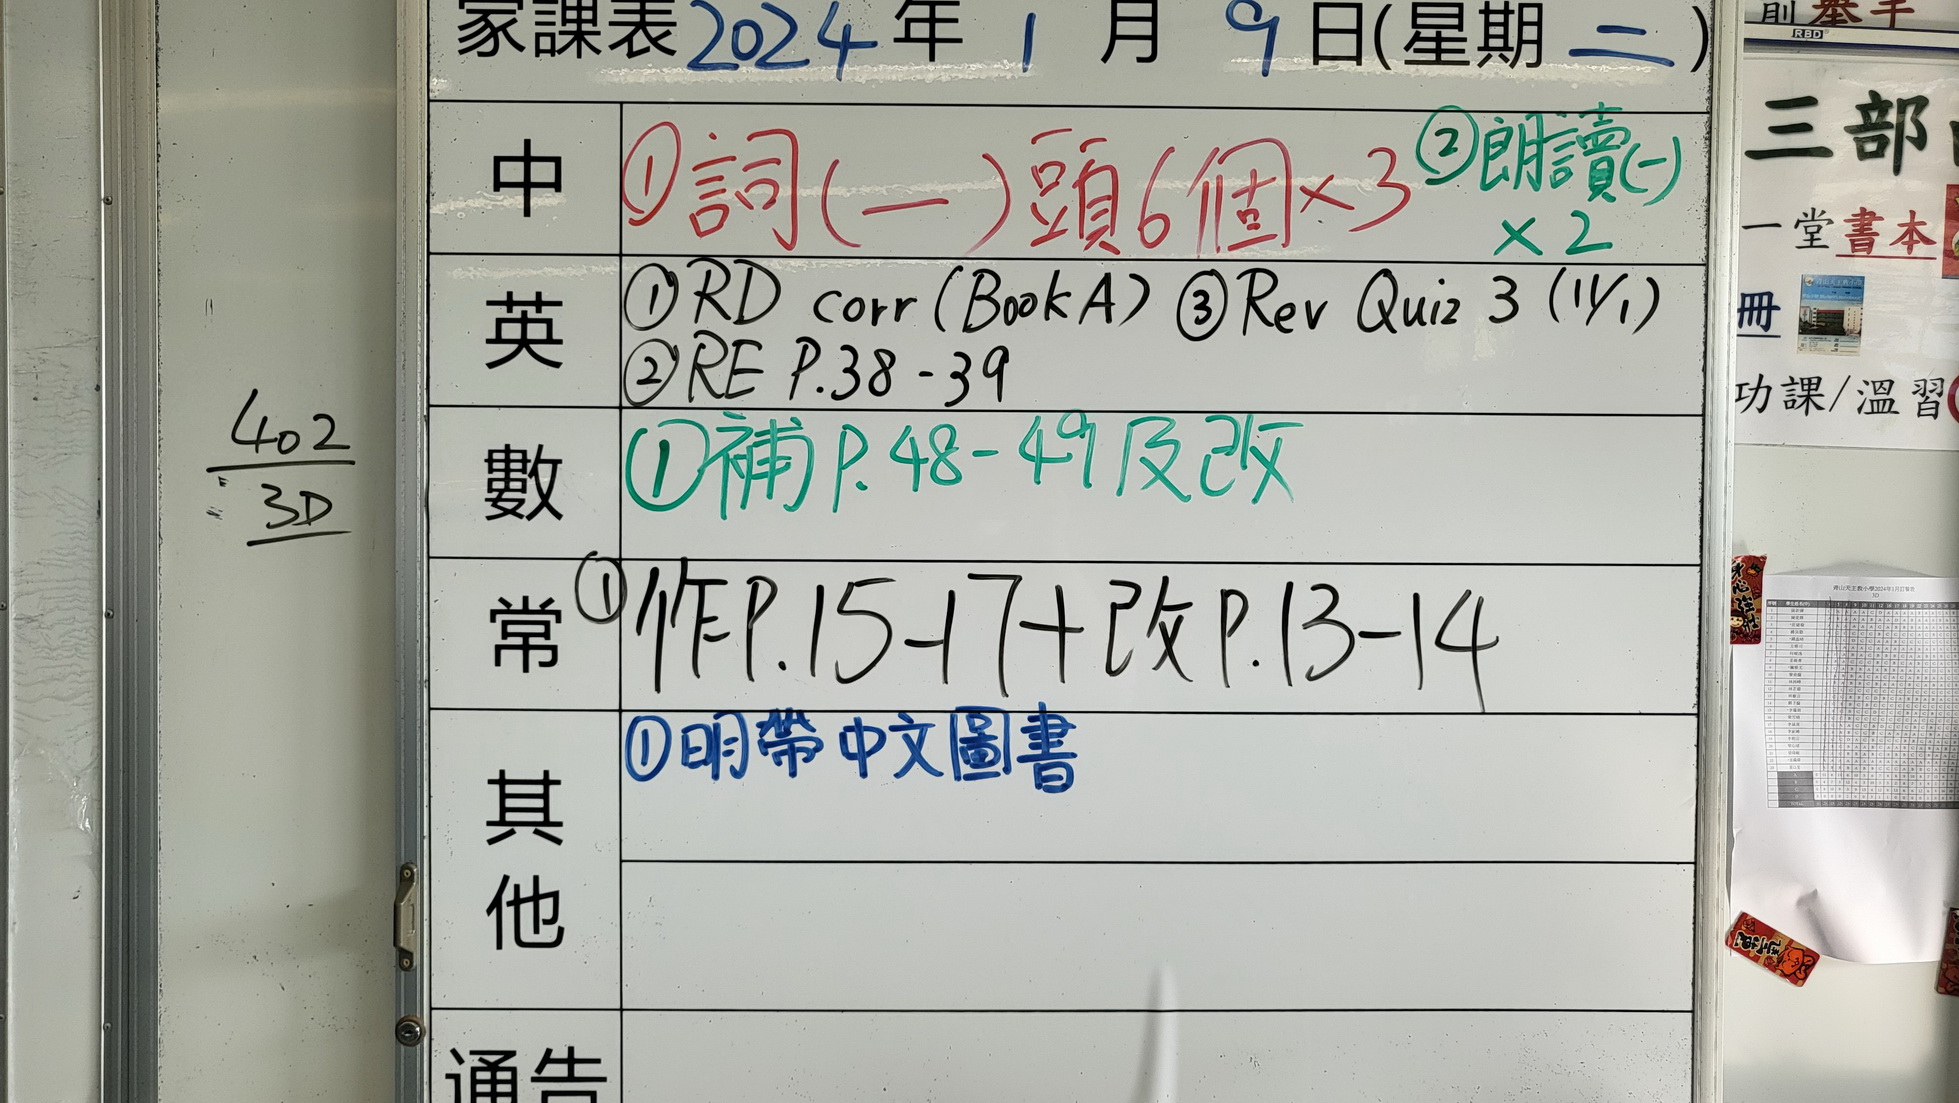 家課表2024年1月9日(星期二)
中
①詞(一)頭6個×3
②朗讀(一)
×2
英
①RD corr (Book A) ③Rev Quiz 3 (11/1)
②RE P.38-39
數
①補P.48-49及改
常
①作P.15-17+改P.13-14
其他
①明帶中文圖書
通告
402
3D
前舉手
RBD
三部
一堂書本
冊
功課/溫習